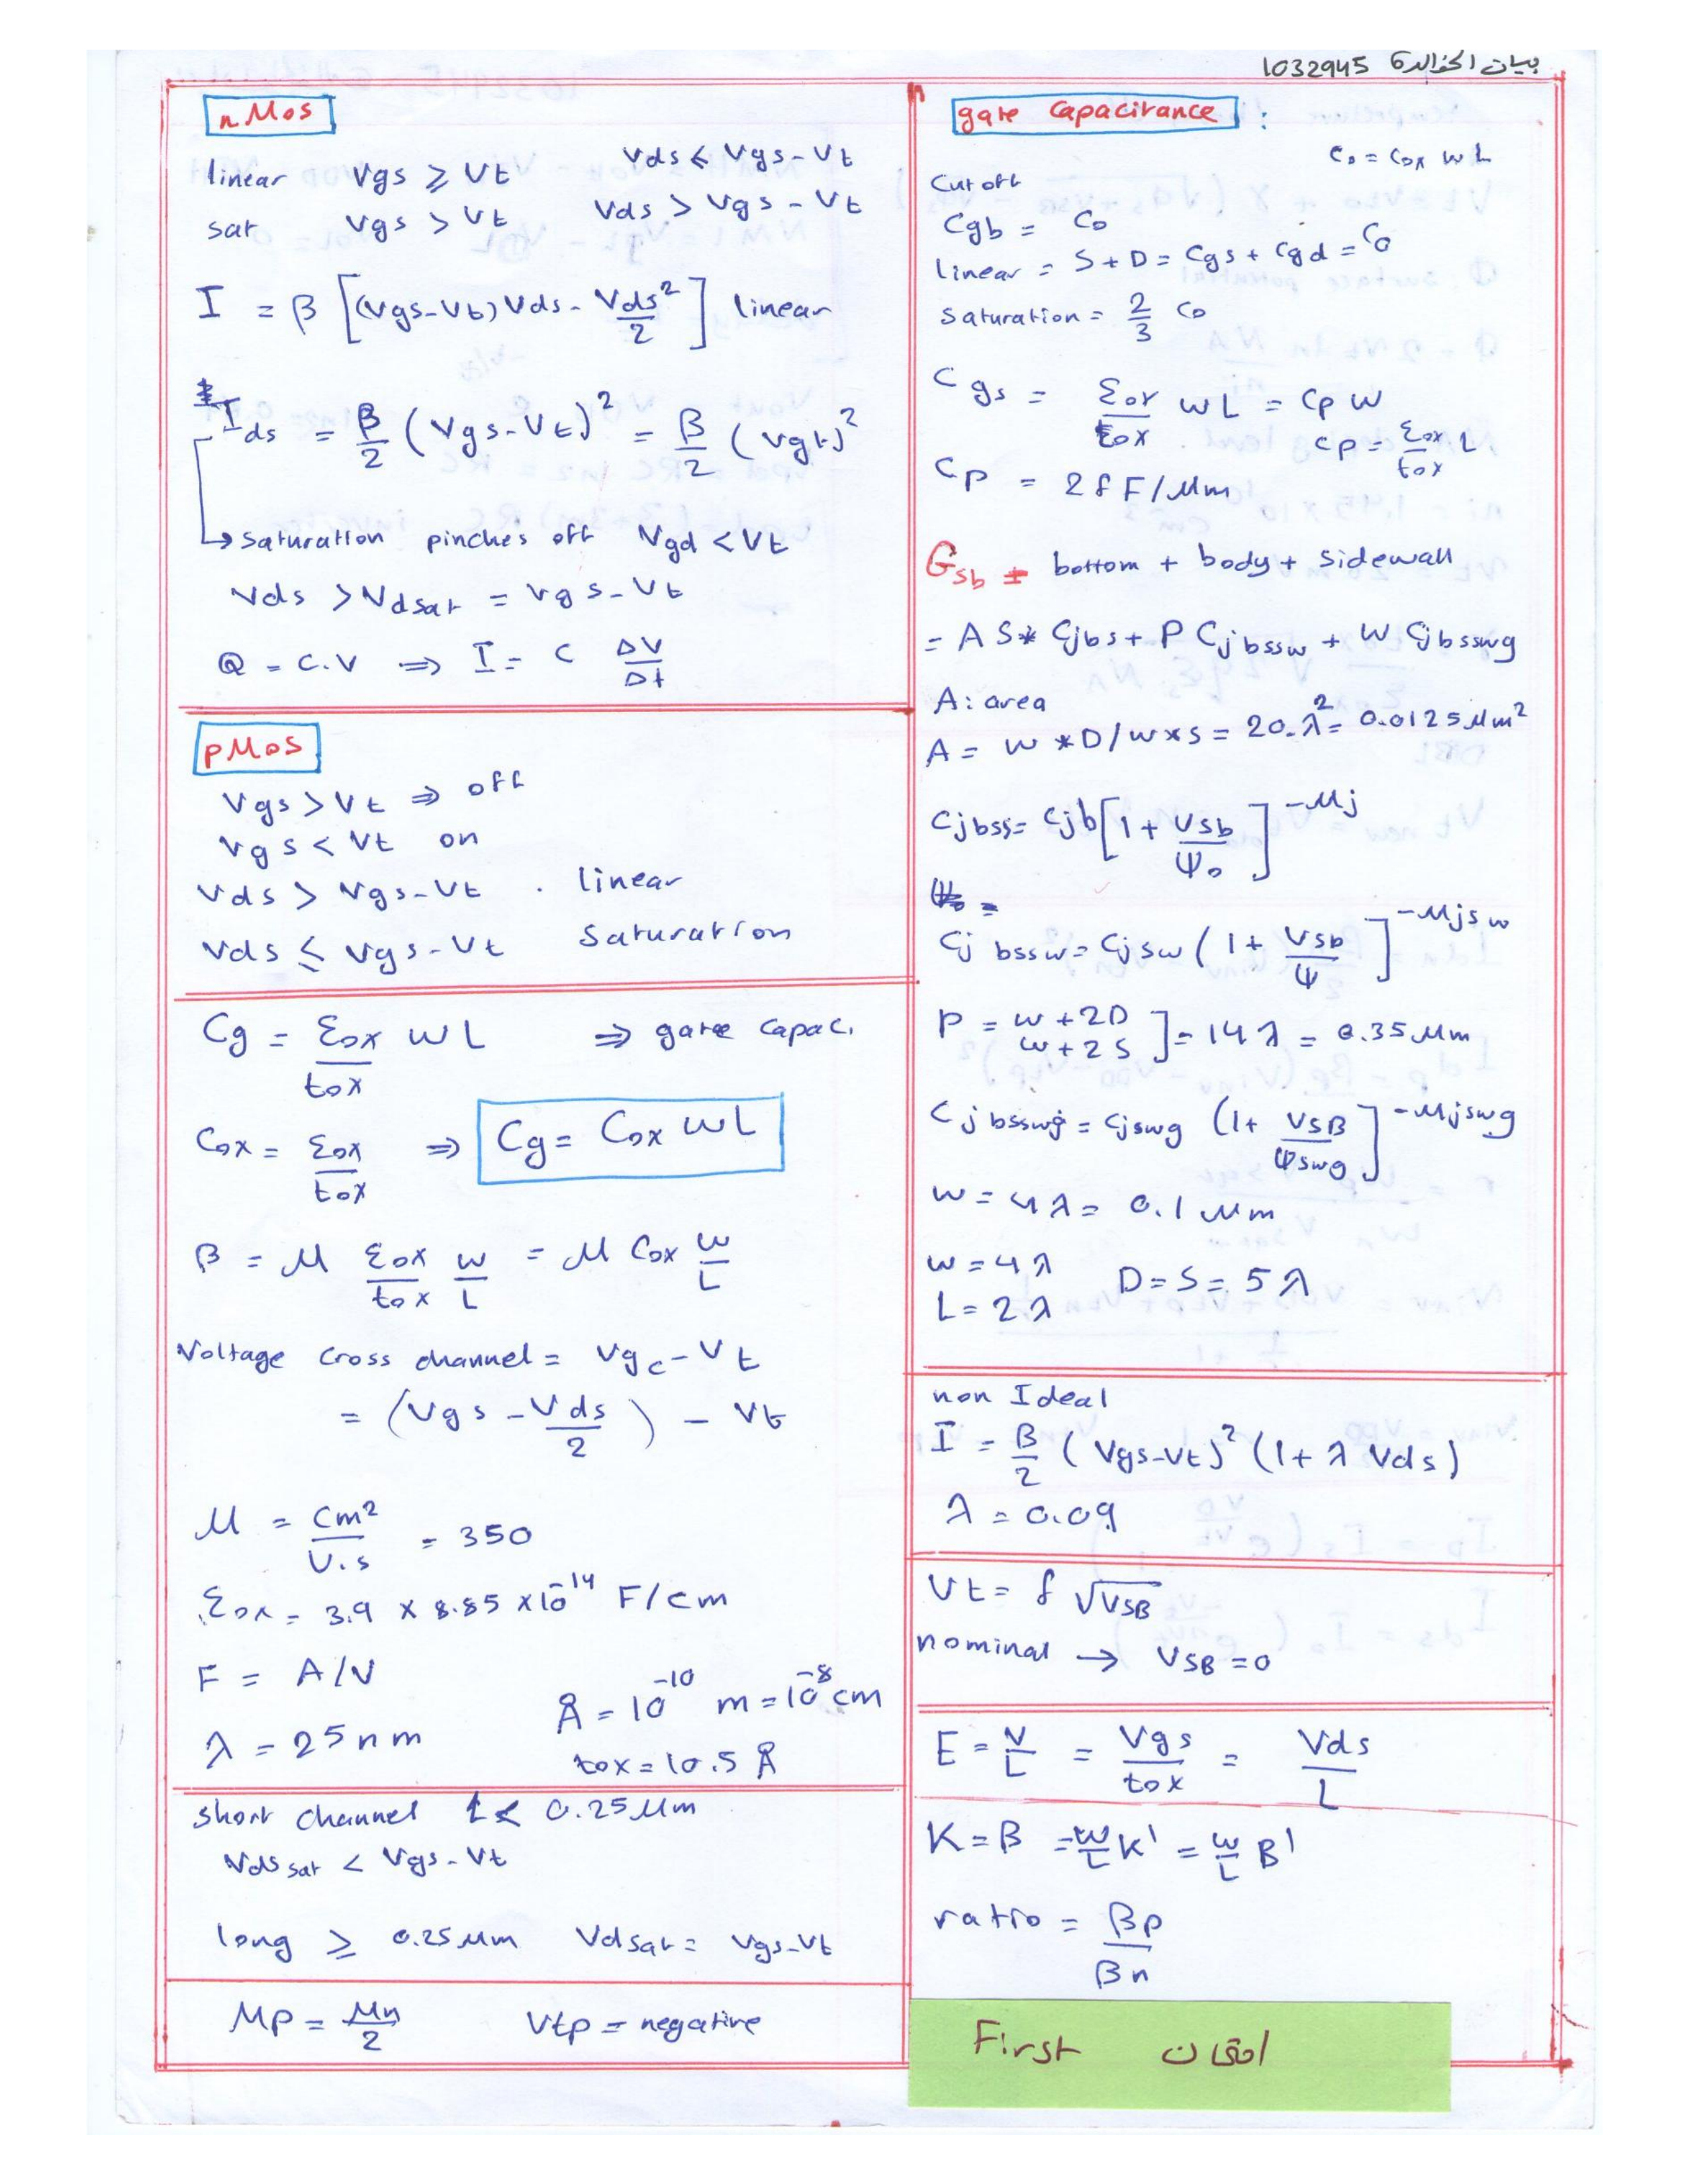 بيان الخوالدة 1032945
nMos
linear Vgs ⩾ Vt Vds < Vgs-Vt
sat Vgs > Vt Vds > Vgs - Vt
I = β [(Vgs-Vt) Vds - Vds²/2] linear
Ids = β/2 (Vgs-Vt)² = β/2 (Vgt)²
↳ saturation pinches off Vgd < Vt
Vds > Vdsat = Vgs-Vt
Q = C.V ⇒ I = C ΔV/Δt
pMos
Vgs > Vt ⇒ off
Vgs < Vt on
Vds > Vgs-Vt . linear
Vds ≤ Vgs-Vt Saturation
Cg = εox/tox WL ⇒ gate capac.
Cox = εox/tox ⇒ Cg = Cox WL
β = μ εox/tox W/L = μ Cox W/L
Voltage cross channel = Vgc-Vt
= (Vgs - Vds/2) - Vt
μ = cm²/V.s = 350
εox = 3.9 × 8.85 × 10⁻¹⁴ F/cm
F = A/V
Å = 10⁻¹⁰ m = 10⁻⁸ cm
λ = 25 nm
tox = 10.5 Å
short channel L < 0.25 μm
Vds sat < Vgs-Vt
long ≥ 0.25 μm Vdsat = Vgs-Vt
μp = μn/2 Vtp = negative
gate capacitance :
C₀ = Cox WL
Cut off
Cgb = C₀
linear = S+D = Cgs + Cgd = C₀
saturation = 2/3 C₀
Cgs = εox/tox WL = Cp W
Cp = εox/tox L
Cp = 2 fF/μm
Csb = bottom + body + sidewall
= AS * Cjbs + P Cjbssw + W Cjbsswg
A: area
A = W*D/W×S = 20.λ² = 0.0125 μm²
Cjbss = Cjb [1 + Vsb/Ψ₀]^-Mj
Cjbssw = Cjsw (1 + Vsb/Ψ]^-Mjsw
P = W+2D W+2S ] = 14λ = 0.35 μm
Cjbsswg = Cjswg (1 + VSB/Ψswg]^-Mjswg
W = 4λ = 0.1 μm
W = 4λ
L = 2λ D = S = 5λ
non Ideal
I = β/2 (Vgs-Vt)² (1 + λ Vds)
λ = 0.09
Vt = f √VSB
nominal → VSB = 0
E = V/L = Vgs/tox = Vds/L
K = β = W/L K' = W/L β'
ratio = βp/βn
First امتحان